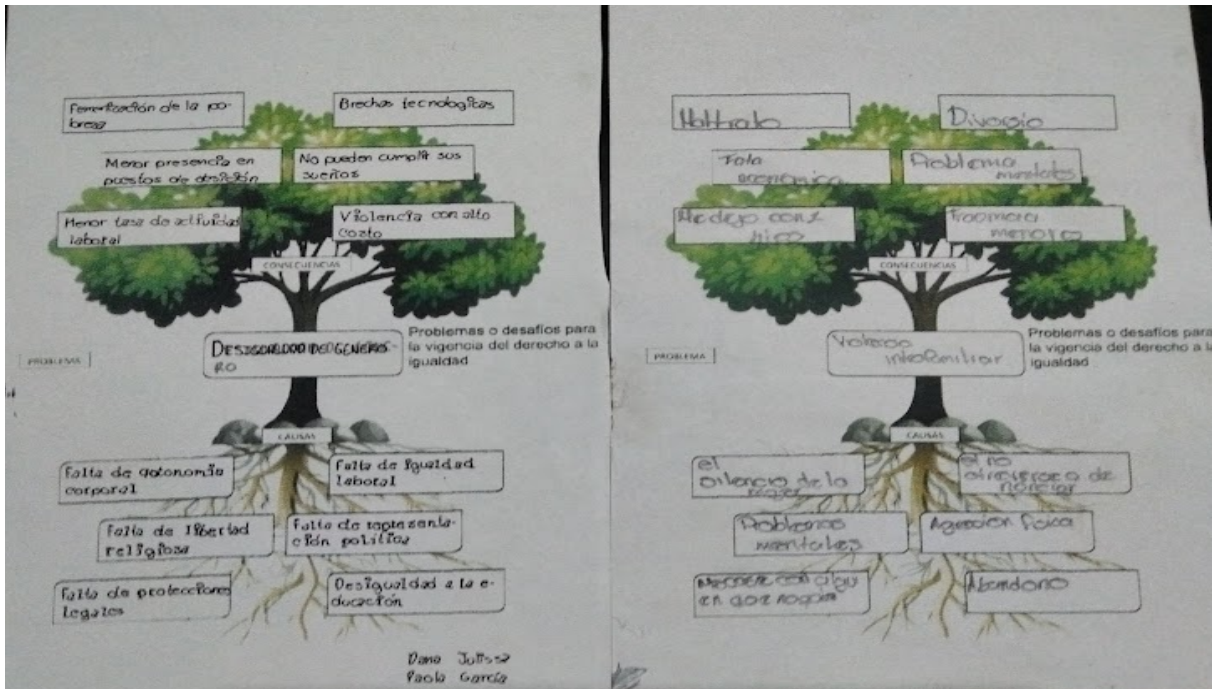 Feminización de la po-
breza
Brechas tecnologicas
Menor presencia en
puestos de
No pueden cumplir sus
sueños
Menor tasa de actividad
laboral
Violencia con alto
costo
CONSECUENCIAS
PROBLEMA
Problemas o desafíos para
la vigencia del derecho a la
igualdad
CAUSAS
Falta de autonomía
corporal
Falta de igualdad
laboral
Falta de libertad
religiosa
Falta de representa-
ción política
Falta de protecciones
legales
Desigualdad a la e-
ducación
Dana Julissa
Paola García
Maltrato
Divorcio
Problema
mentales
CONSECUENCIAS
PROBLEMA
intrafamiliar
Problemas o desafíos para
la vigencia del derecho a la
igualdad
CAUSAS
el
silencio de la
mujer
el no
Problemas
mentales
Agresion fisica
Abandono